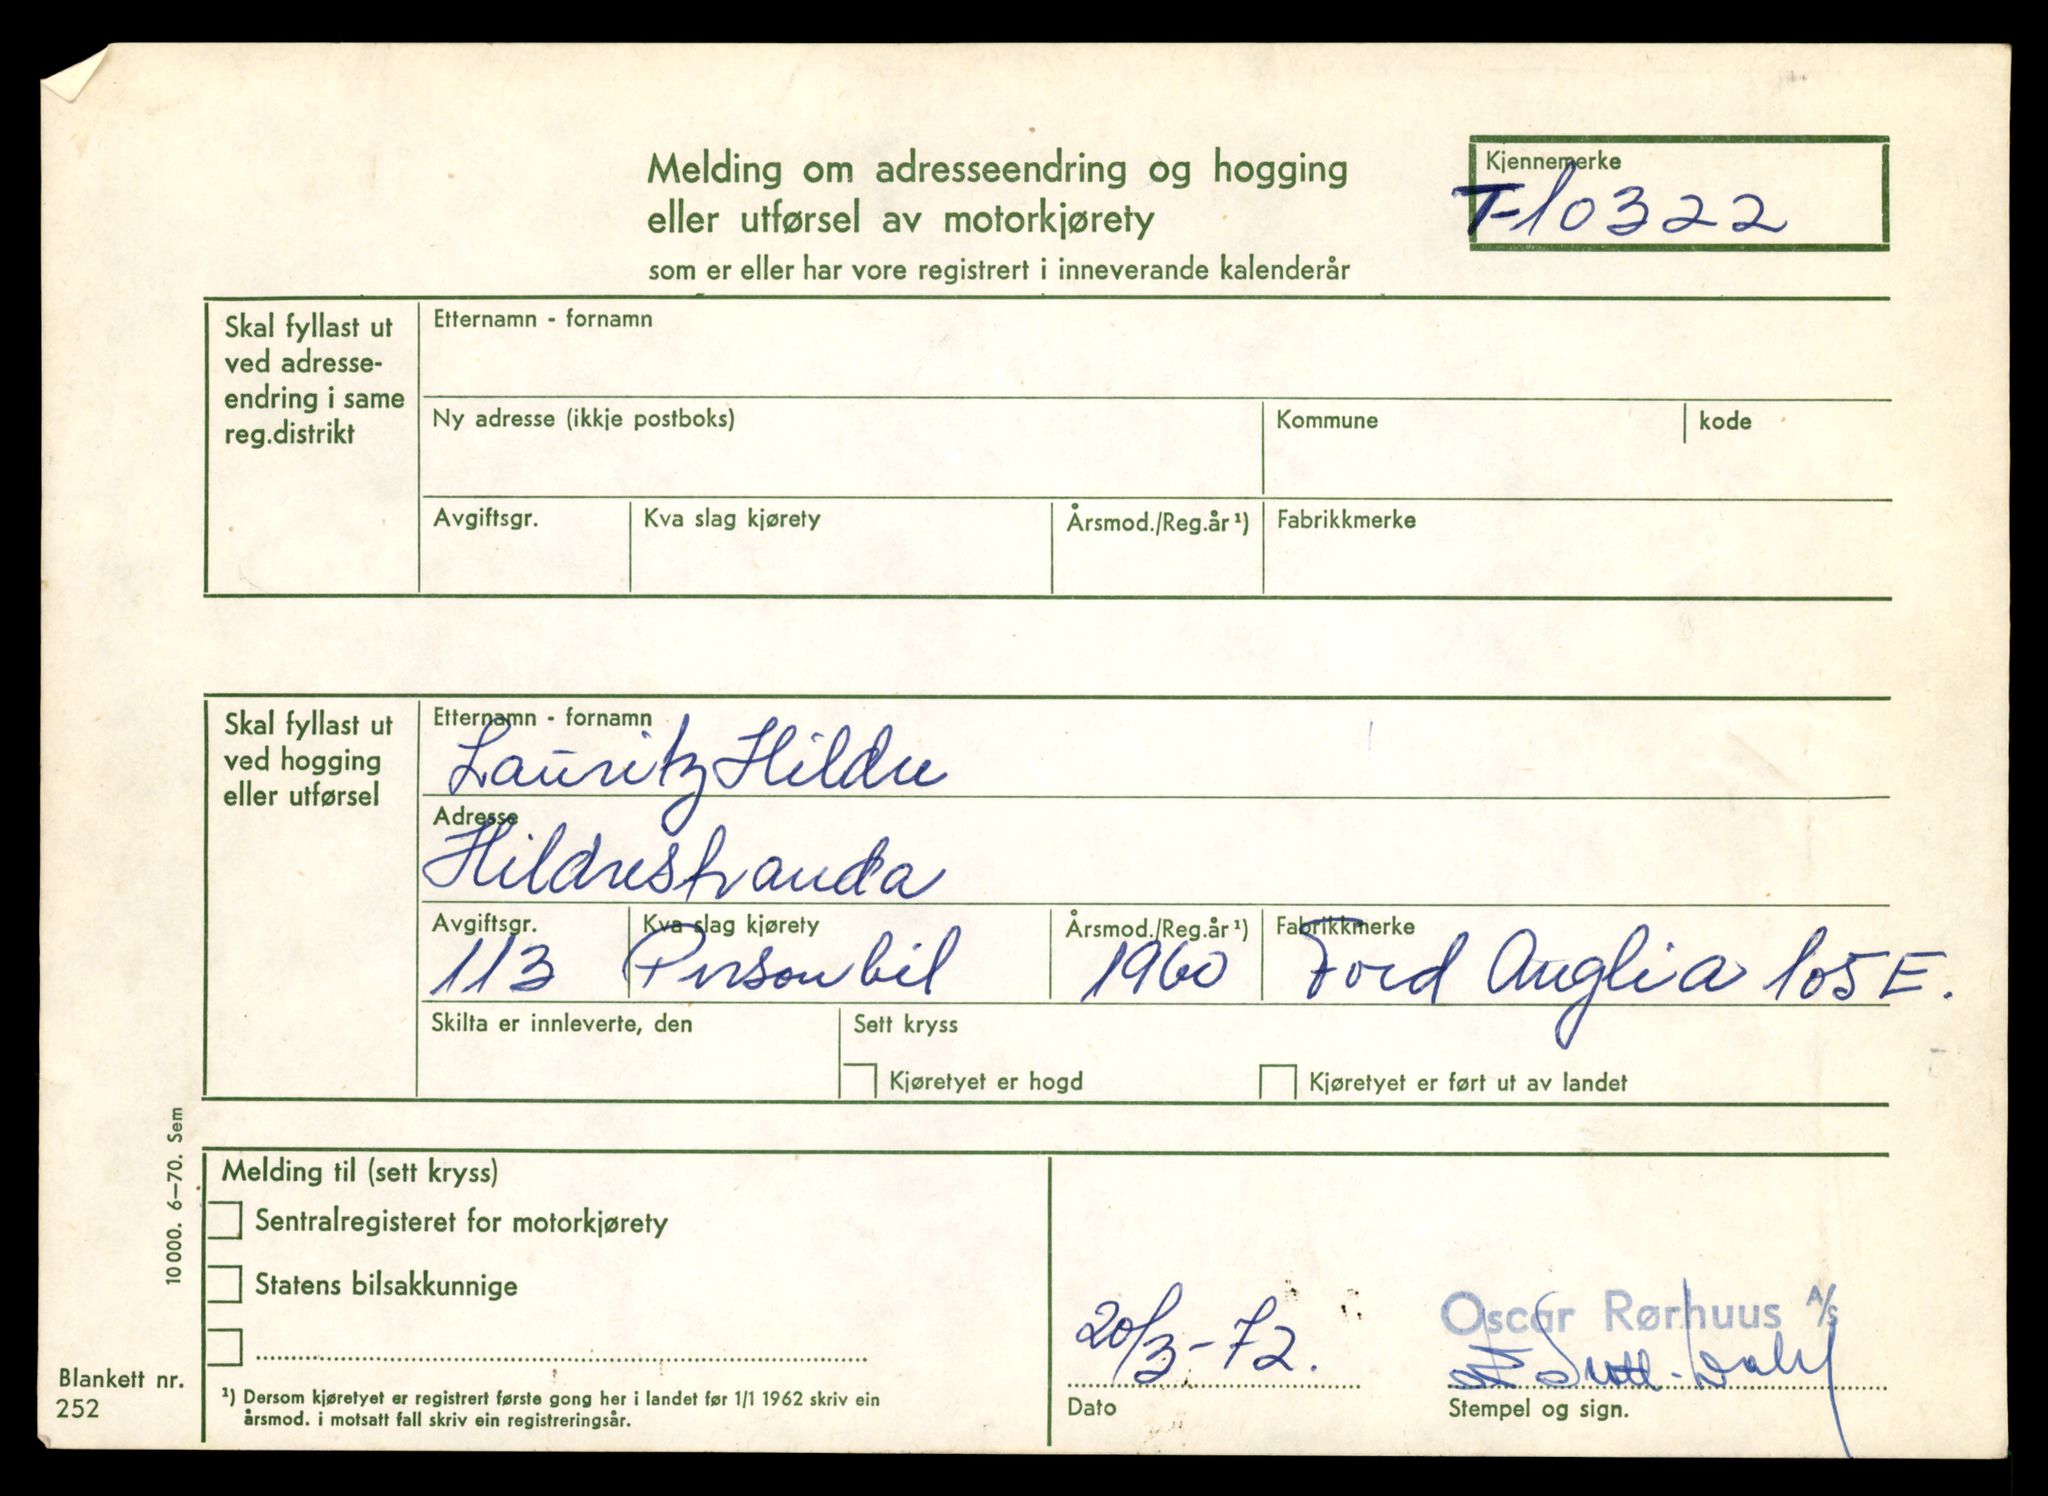 Melding om adresseendring og hogging
eller utførsel av motorkjørety
som er eller har vore registrert i inneverande kalenderår
Kjennemerke
T-10322
Skal fyllast ut
ved adresse-
endring i same
reg.distrikt
Etternamn - fornamn
Ny adresse (ikkje postboks)
Kommune
kode
Avgiftsgr.
Kva slag kjørety
Årsmod./Reg.år ¹)
Fabrikkmerke
Skal fyllast ut
ved hogging
eller utførsel
Etternamn - fornamn
Lauritz Hildre
Adresse
Hildrestranda
Avgiftsgr.
Kva slag kjørety
Årsmod./Reg.år ¹)
Fabrikkmerke
113 Personbil 1960 Ford Anglia 105E.
Skilta er innleverte, den
Sett kryss
Kjøretyet er hogd
Kjøretyet er ført ut av landet
10 000. 6–70. Sem
Melding til (sett kryss)
Sentralregisteret for motorkjørety
Statens bilsakkunnige
Blankett nr.
252
¹) Dersom kjøretyet er registrert første gong her i landet før 1/1 1962 skriv ein
årsmod. i motsatt fall skriv ein registreringsår.
20/3-72.
Dato
Oscar Rørhuus A/S
Stempel og sign.